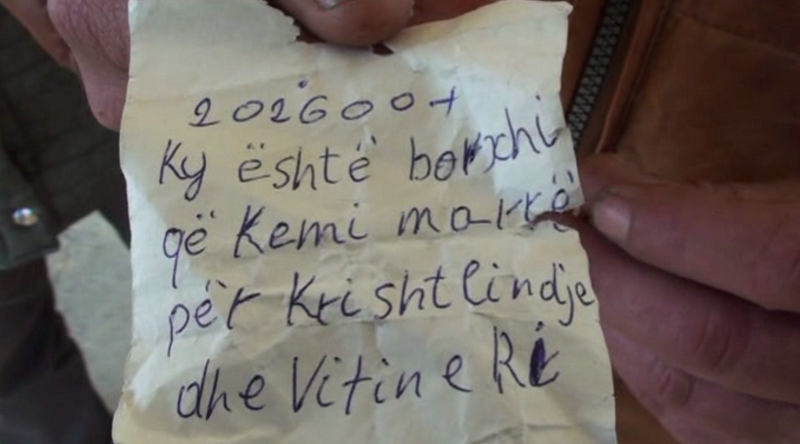 202600+
Ky është borxhi
që kemi marrë
për Krishtlindje
dhe Vitin e Ri